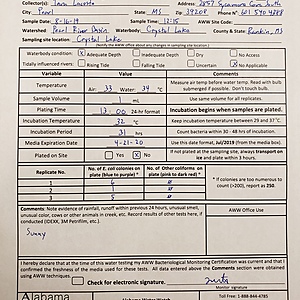 Collector(s): Tami Lacoste Address: 2857 Sycamore Cove South
City: Pearl State: MS Zip 39208 Phone: 601 540 4288
Sample Date: 8-16-19 Sample Time: 12:15 AWW Site Code:
Watershed: Pearl River Basin Waterbody: Crystal Lake County & State: Rankin, MS
Sampling site location: Crystal Lake
(Notify the AWW office about any changes in sampling site location)
Waterbody condition: Adequate Depth Inadequate Depth Dry No Access
Tidally influenced rivers: Rising Tide Falling Tide Uncertain Not Applicable
Variable Value Comments
Temperature Air: 33 Water: 34 °C Measure air temp before water temp. Read with bulb submerged if possible. Don't touch bulb.
Sample Volume 1 mL Use same volume for all replicates.
Plating Time 13:00 24-hr format Incubation begins when samples are plated.
Incubation Temperature 32 °C Keep incubation temperature between 29 and 37°C.
Incubation Period 31 hrs Count bacteria within 30 - 48 hrs of incubation.
Media Expiration Date 4-21-20 Use this date format, Jul/2019 (from the media bottle).
Plated on Site Yes X No If not plated at the sampling site, always transport on ice and plate within 3 hours.
Replicate No. No. of E. coli colonies on plate (blue to purple) * No. of Other coliforms on plate (pink to dark red) *
* If colonies are too numerous to count (>200), report as 250.
1
2
3
Note odor, evidence of runoff, rainfall within previous 24 hours, unusual smell, unusual color, cows or other animals in creek, etc. Record results of other tests here, if conducted (IDEXX, 3M Petrifilm, etc.).
AWW Office Use
Sunny
I hereby declare that at the time of this water testing my AWW Bacteriological Monitoring Certification was current and that I confirmed the freshness of the media used for these tests. All data entered above the Comments section were obtained using AWW techniques
Check for electronic signature.
Monitor signature
Alabama Alabama Water Watch Toll Free: 1-888-844-4785